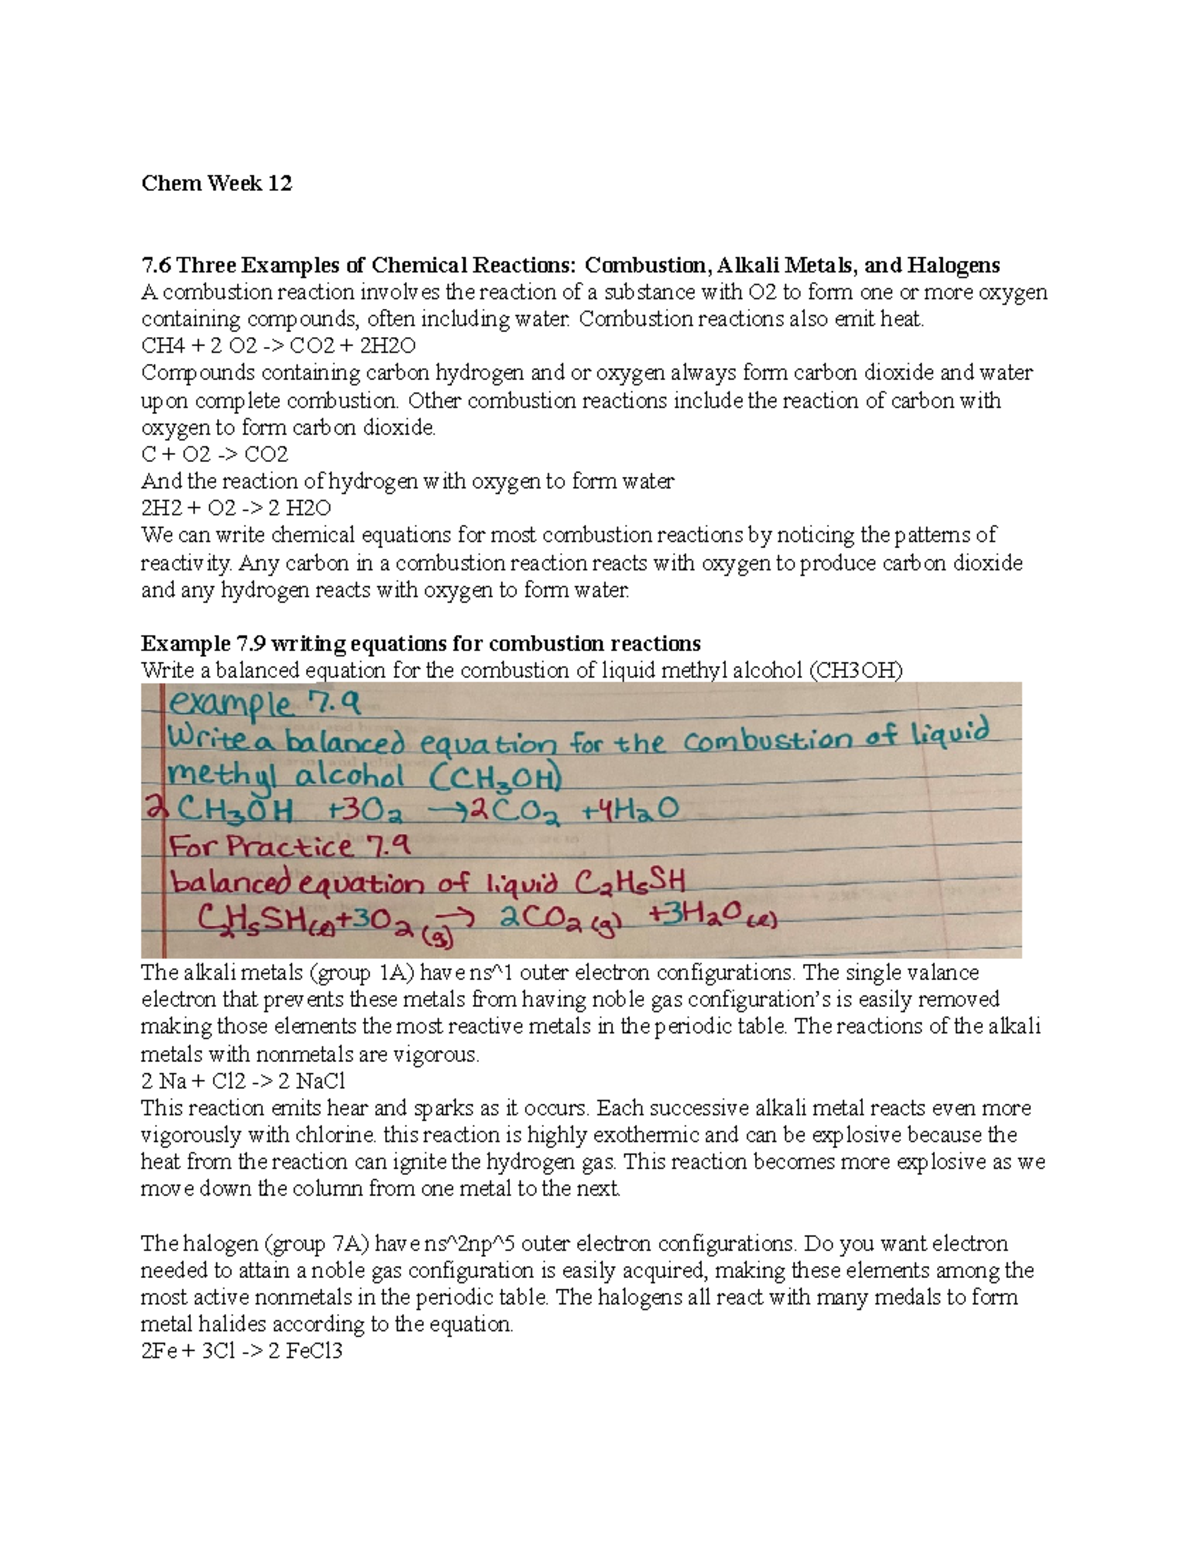 Chem Week 12
7.6 Three Examples of Chemical Reactions: Combustion, Alkali Metals, and Halogens
A combustion reaction involves the reaction of a substance with O2 to form one or more oxygen
containing compounds, often including water. Combustion reactions also emit heat.
CH4 + 2 O2 -> CO2 + 2H2O
Compounds containing carbon hydrogen and or oxygen always form carbon dioxide and water
upon complete combustion. Other combustion reactions include the reaction of carbon with
oxygen to form carbon dioxide.
C + O2 -> CO2
And the reaction of hydrogen with oxygen to form water
2H2 + O2 -> 2 H2O
We can write chemical equations for most combustion reactions by noticing the patterns of
reactivity. Any carbon in a combustion reaction reacts with oxygen to produce carbon dioxide
and any hydrogen reacts with oxygen to form water.
Example 7.9 writing equations for combustion reactions
Write a balanced equation for the combustion of liquid methyl alcohol (CH3OH)
example 7.9
Write a balanced equation for the combustion of liquid
methyl alcohol (CH₃OH)
2 CH₃OH +3O₂ →2CO₂ +4H₂O
For Practice 7.9
balanced equation of liquid C₂H₅SH
C₂H₅SH(l)+3O₂(g) → 2CO₂(g) +3H₂O(l)
The alkali metals (group 1A) have ns^1 outer electron configurations. The single valance
electron that prevents these metals from having noble gas configuration’s is easily removed
making those elements the most reactive metals in the periodic table. The reactions of the alkali
metals with nonmetals are vigorous.
2 Na + Cl2 -> 2 NaCl
This reaction emits hear and sparks as it occurs. Each successive alkali metal reacts even more
vigorously with chlorine. this reaction is highly exothermic and can be explosive because the
heat from the reaction can ignite the hydrogen gas. This reaction becomes more explosive as we
move down the column from one metal to the next.
The halogen (group 7A) have ns^2np^5 outer electron configurations. Do you want electron
needed to attain a noble gas configuration is easily acquired, making these elements among the
most active nonmetals in the periodic table. The halogens all react with many medals to form
metal halides according to the equation.
2Fe + 3Cl -> 2 FeCl3